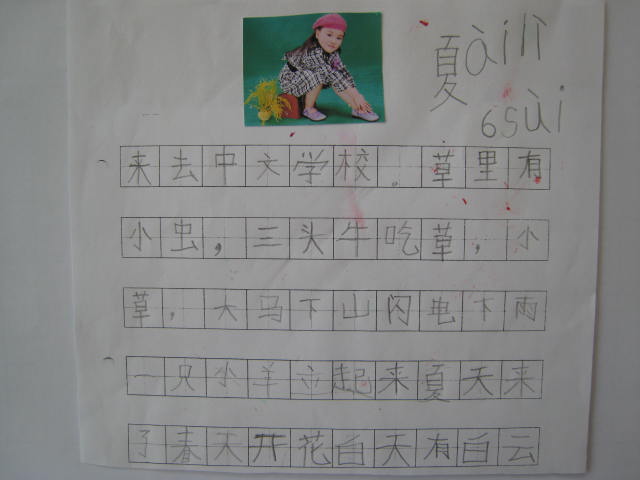 夏àilì
6suì
来去中文学校。草里有
小虫，三头牛吃草，小
草，大马下山闪电下雨
一只小羊立起来夏天来
了春天开花白天有白云